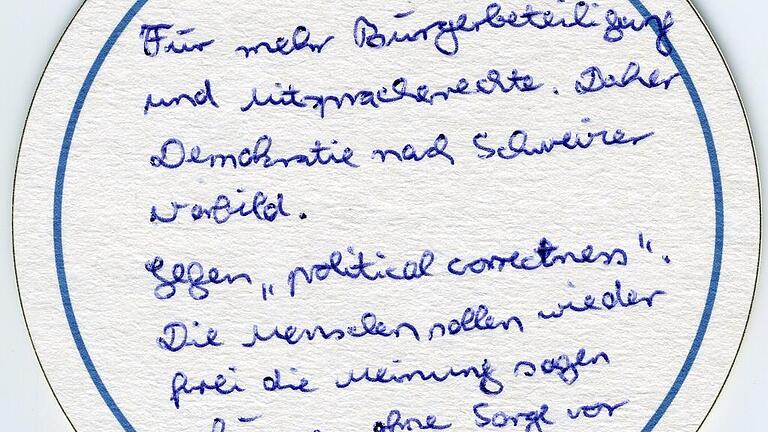 Für mehr Bürgerbeteiligung
und Mitspracherechte. Daher
Demokratie nach Schweizer
Vorbild.
Gegen „political correctness".
Die Menschen sollen wieder
frei die Meinung sagen
ohne Sorge vor